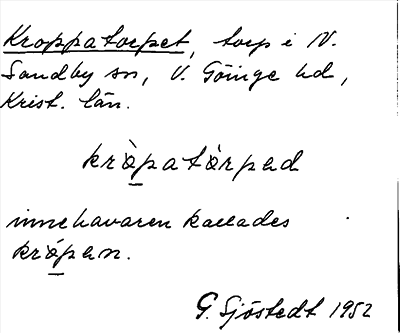 Kroppatorpet, torp i N.
Sandby sn, V. Göinge hd,
Krist. län.
kròpatàrped
innehavaren kallades
kròpen.
G. Sjöstedt 1952